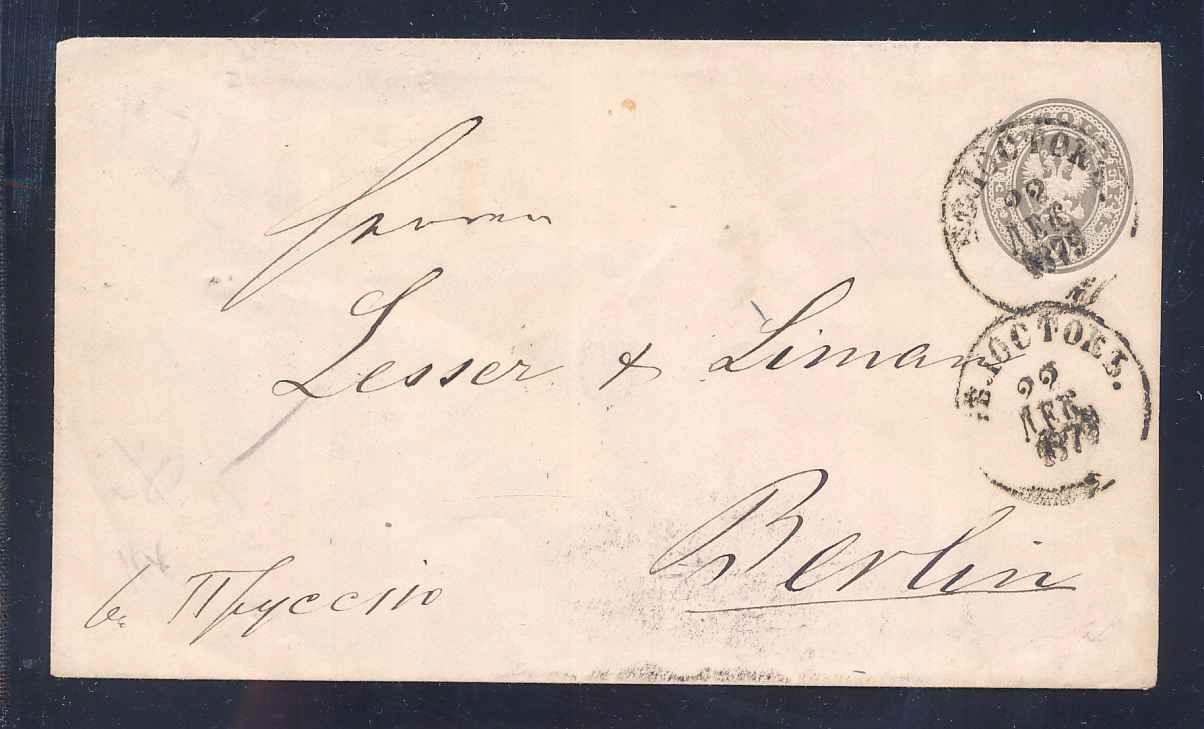 Herren
Lesser & Liman
Berlin
въ Пруссію
БѢЛОСТОКЪ.
22
ДЕК.
1879
БѢЛОСТОКЪ.
22
ДЕК.
1879